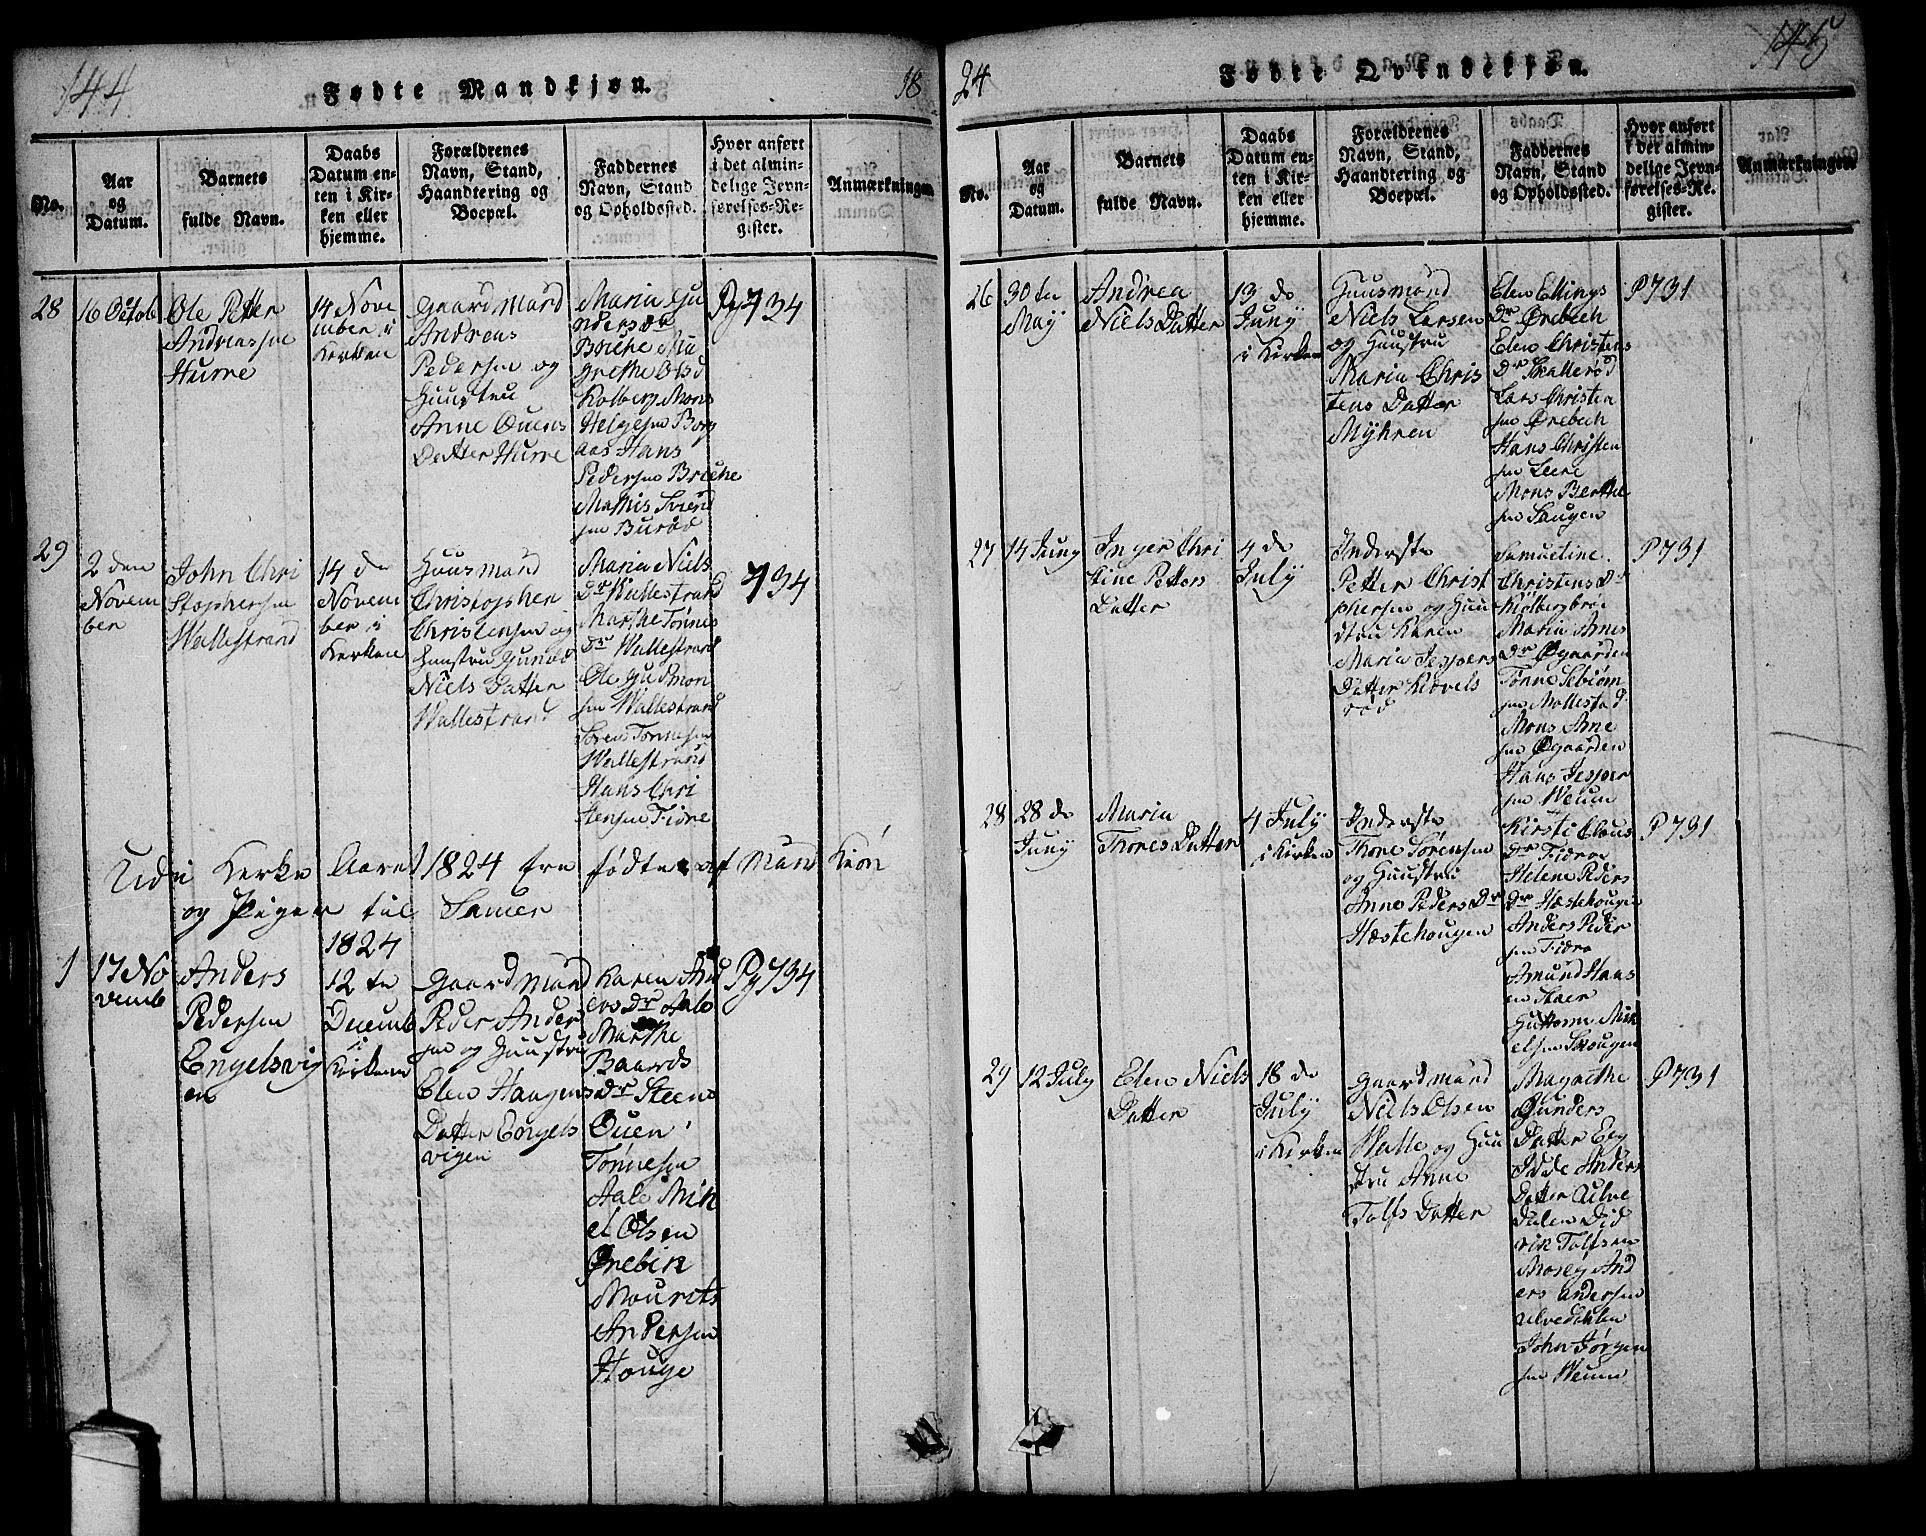 144
Fødte Mandkjøn.
18
No.
Aar
og
Datum.
Barnets
fulde Navn.
Daabs
Datum en-
ten i Kir-
ken eller
hjemme.
Forældrenes
Navn, Stand,
Haandtering og
Boepæl.
Faddernes
Navn, Stand
og Opholdssted.
Hvor anført
i det almin-
delige Jevn-
førelses-Re-
gister.
Anmærkninger.
28
16 Octob
Ole Petter
Andreassen
Hurre
14 Nove
mber i
Kerken
Gaardmand
Andreas
Pedersen og
Huustru
Anne Ouens
Datter Hurre
Maria Gu
ndersdr
Bolberg Mons
Helgesen Borg
aas Hans
Pedersen Breche
Mathis Svend
sen Buraas
Pg 734
29
2 den
Novem
ber
John Chri
Stophersen
Wallestrand
14 de
Novem
ber i
Kerken
Huusmand
Christopher
Christensen og
Huustru Gunild
Niels Datter
Wallestrand
Maria Niels
Dr Wallestrand
Marthe Tønnes
Dr Wallestrand
Ole Gudmon
sen Wallestrand
Søren Tønnesen
Wallestrand
Hans Chri
stensen Fiøre
734
Udi Kerke Aaret 1824 ere fødte af Mand Kiøn
og Piger til Samer
1824
1
17 No
vemb
Anders
Pedersen
Engelsvig
en
12 te
Decemb
i
Kirken
Gaardmand
Peder Anders
sen og Huustru
Elen Haagens
Datter Engels
vigen
Karen And
ers Dr Aale
Marthe
Baards
Dr Steens
Ouen
Tønnesen
Aale Mik
el Olsen
Ørebek
Mourits
Andersen
Houge
Pg 734
24
Fødte Qvindekjøn.
145
No.
Aar
og
Datum.
Barnets
fulde Navn.
Daabs
Datum en-
ten i Kir-
ken eller
hjemme.
Forældrenes
Navn, Stand,
Haandtering og
Boepæl.
Faddernes
Navn, Stand
og Opholdssted.
Hvor anført
i der almin-
delige Jevn-
førelses-Re-
gister.
Anmærkninger
26
30 te
Maÿ
Andrea
Niels Datter
13 de
Junÿ
i Kirken
Huusmand
Niels Larsen
og Huustru
Maria Chris
tens Datter
Mÿhren
Elen Ellings
Dr Ørebech
Elen Christens
Dr Skallerød
Lars Christen
sen Ørebech
Hans Christen
sen Leere
Mons Berthe
sen Haugen
P 731
27
14 Junÿ
Inger Chri
stine Petters
Datter
4 de
Julÿ
Inderste
Petter Christ
phersen og Huu
stru Karen
Maria Jespers
Datter Rævels
rød
Samueline
Christens Dr
Kiølbergbroe
Maria Arnes
Dr Øgaarden
Tønne Tebiørn
sen Mollestad
Mons Arne
sen Øgaarden
Hans Jesper
sen Weum
P 731
28
28 de
Junÿ
Maria
Thores Datter
4 Julÿ
i Kirken
Inderste
Thore Sørensen
og Huustru
Anne Peders Dr
Hæstehougen
Kirsti Claus
Dr Fidroe
Helene Peders
Dr Hæstehougen
Anders Peder
sen Fidro
Amund Hans
en Staer
Guttorm Mik
elsen Skougen
P 731
29
12 Julÿ
Elen Niels
Datter
18 de
Julÿ
i Kirken
Gaardmand
Niels Olsen
Walle og Huu
stru Anne
Tolfs Datter
Magrethe
Gunders
Datter Eeg
Idde Anders
Datter Ulve
dalen Did
rik Tolfsen
Mosey And
ers Andersen
Ulvedahlen
John Jørgen
sen Weum
P 731